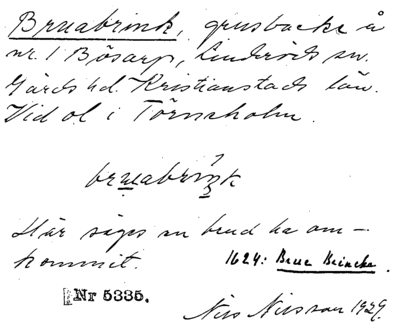 Bruabrink, grusbacke å
nr. 1 Bösarp, Linderöds sn.
Gärds hd. Kristianstads län.
Vid ol i Törnsholm.
bruabriŋk
Här säges en brud ha om-
kommit.
1624: Brue Brincke.
Nr 5335.
Nils Nilsson 1929.